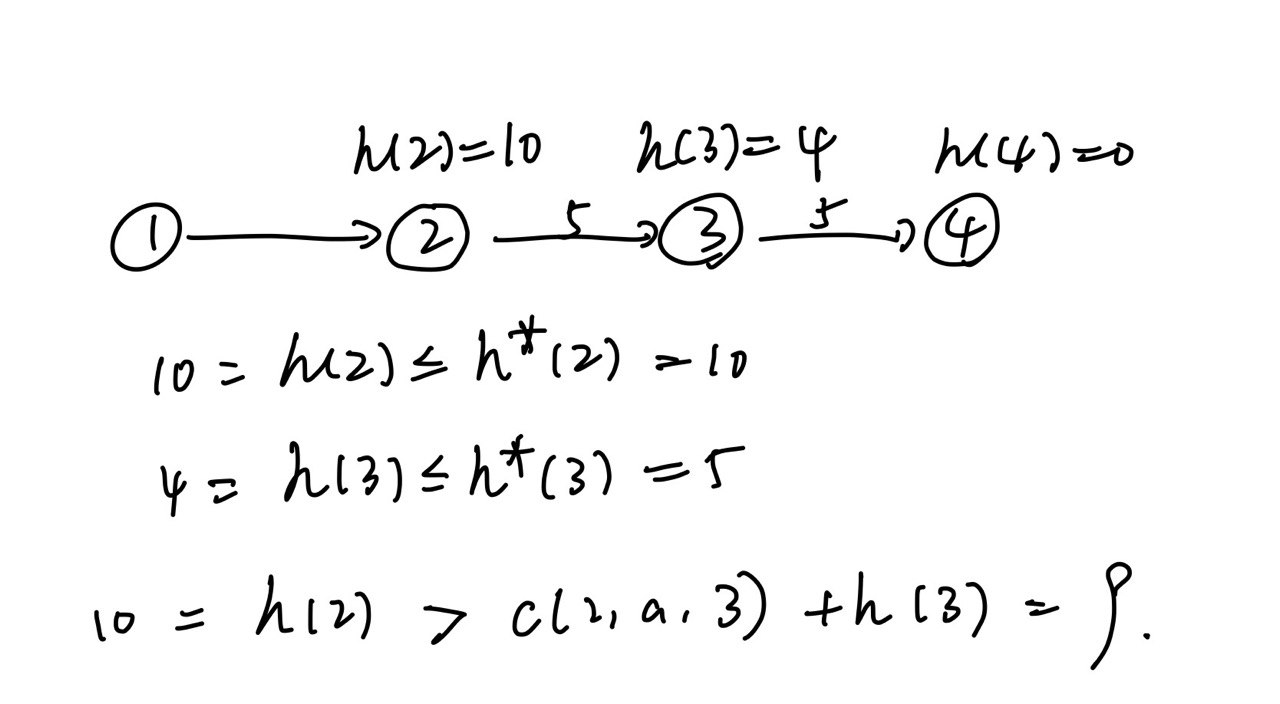 h(2)=10 h(3)=4 h(4)=0
1 2 5 3 5 4
10 = h(2) ≤ h*(2) = 10
4 = h(3) ≤ h*(3) = 5
10 = h(2) > c(2, a, 3) + h(3) = 9.